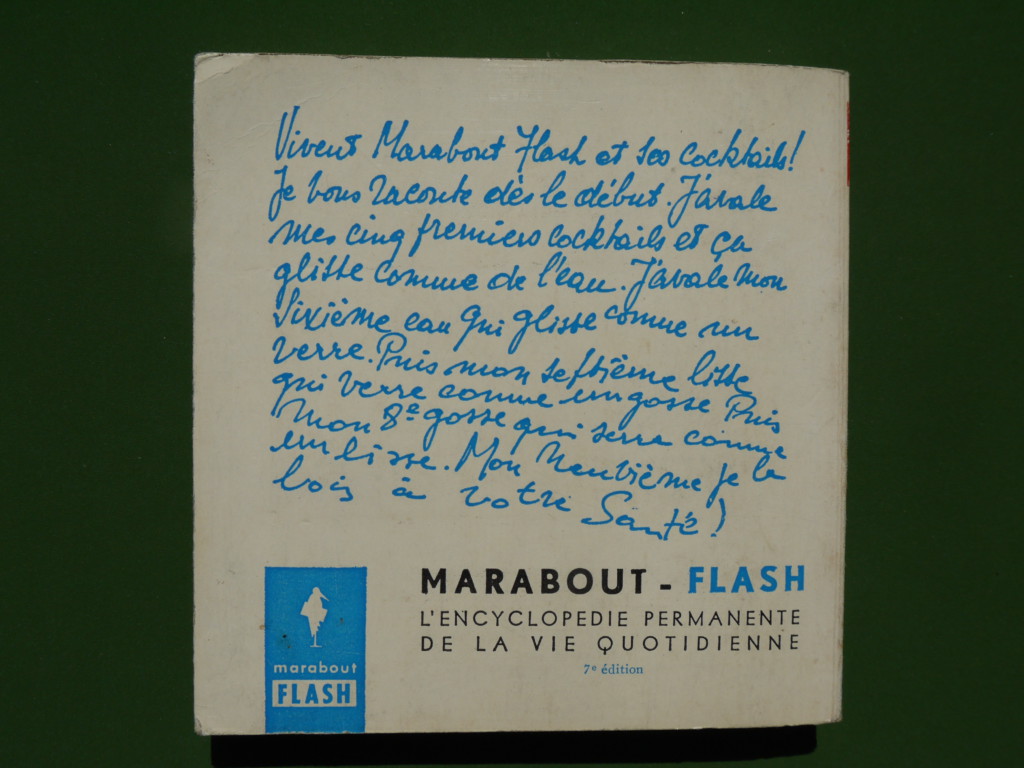 Vivent Marabout Flash et ses cocktails!
Je vous raconte dès le début. J'avale
mes cinq premiers cocktails et ça
glisse comme de l'eau. J'avale mon
Sixième eau qui glisse comme un
verre. Puis mon septième lisse
qui verre comme un gosse Puis
Mon 8e gosse qui serre comme
un lisse. Mon Neuvième je le
bois à votre Santé!
MARABOUT - FLASH
L'ENCYCLOPEDIE PERMANENTE
DE LA VIE QUOTIDIENNE
7e édition
marabout
FLASH